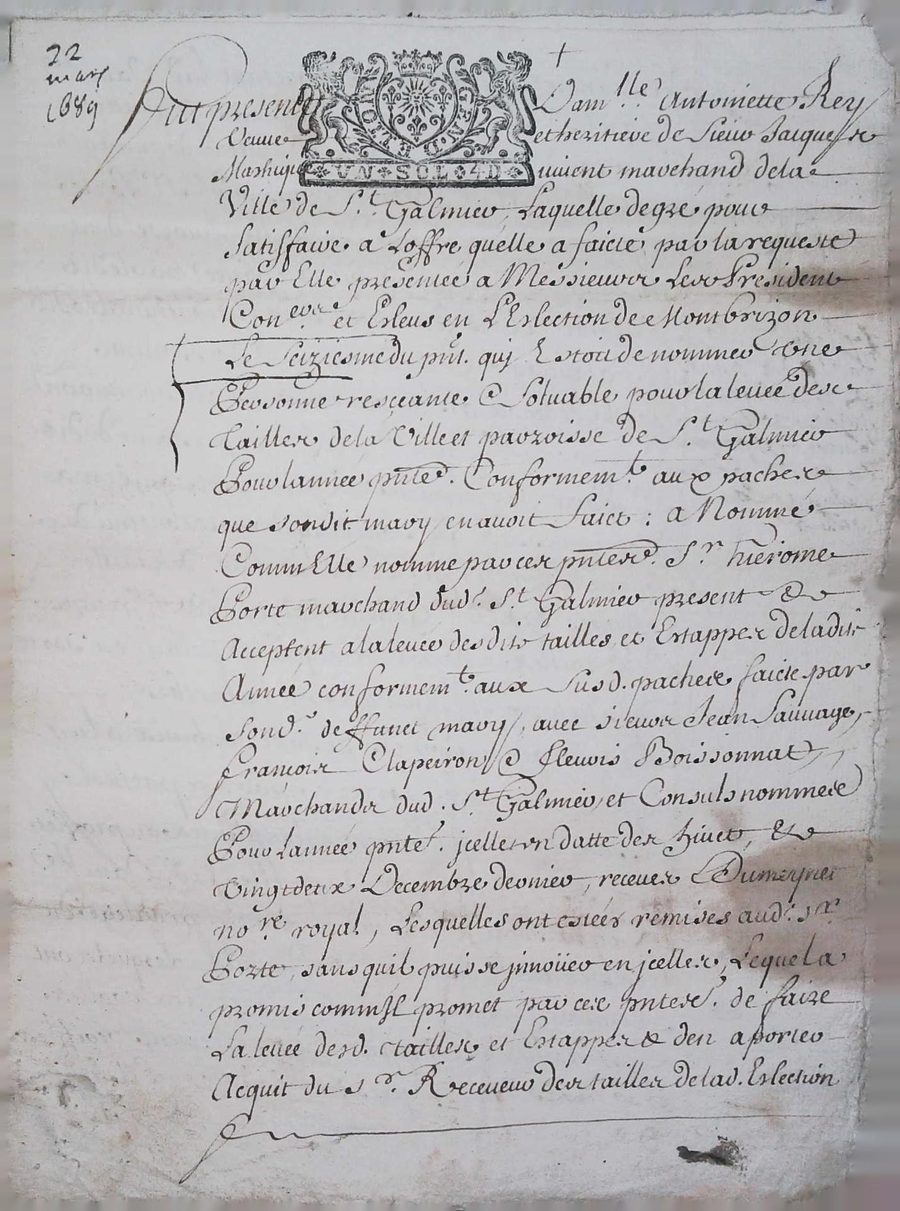 22
mars
1689
GEN. D. ET LOM
UN SOL 4D
Fut presente Dam.lle Antoinette Rey
Veuve et heritiere de Sieur Jacques
vivient marchand de la
Ville de S.t Galmier, Laquelle de gré pour
Satisfaire a Loffre quelle a faicte par la requeste
par Elle presentée a Messieurs Les President
Con.ers et Esleus en L'Eslection de Montbrizon
Le Seiziesme du pnt. quj Estoit de nommer une
Personne resceante & Soluable pour la levée des
Tailles de la Ville et parroisse de S.t Galmier
Pour lannée pnte. Conformem.t aux paches
que sondit mary en avoit faict : a Nommé
Comm Elle nomme par ces pntes. S.r hierome
Porte marchand dud. S.t Galmier present &
Acceptent a la levée desdits tailles et Estappes de ladite
Année conformem.t aux Susd. paches faicts par
Sond. deffunct mary, avec sieurs Jean Sauvage,
francois Clapeiron & fleuris Boissonnat,
Marchands dud. S.t Galmier, et Consuls nommes
Pour Lannée pnte. jcelles en datte des huict, &
vingt deux Decembre dernier, receues Dumeynet
no.re royal, Lesquelles ont estées remises aud. s.r
Porte, sans quil puisse jnnouer en jcelles, Lequel a
promis comm Il promet par ces pntes. de faire
La levée desd. tailles et Estappes & den aporter
Acquit du s.r Receveur des tailles de lad. Eslection